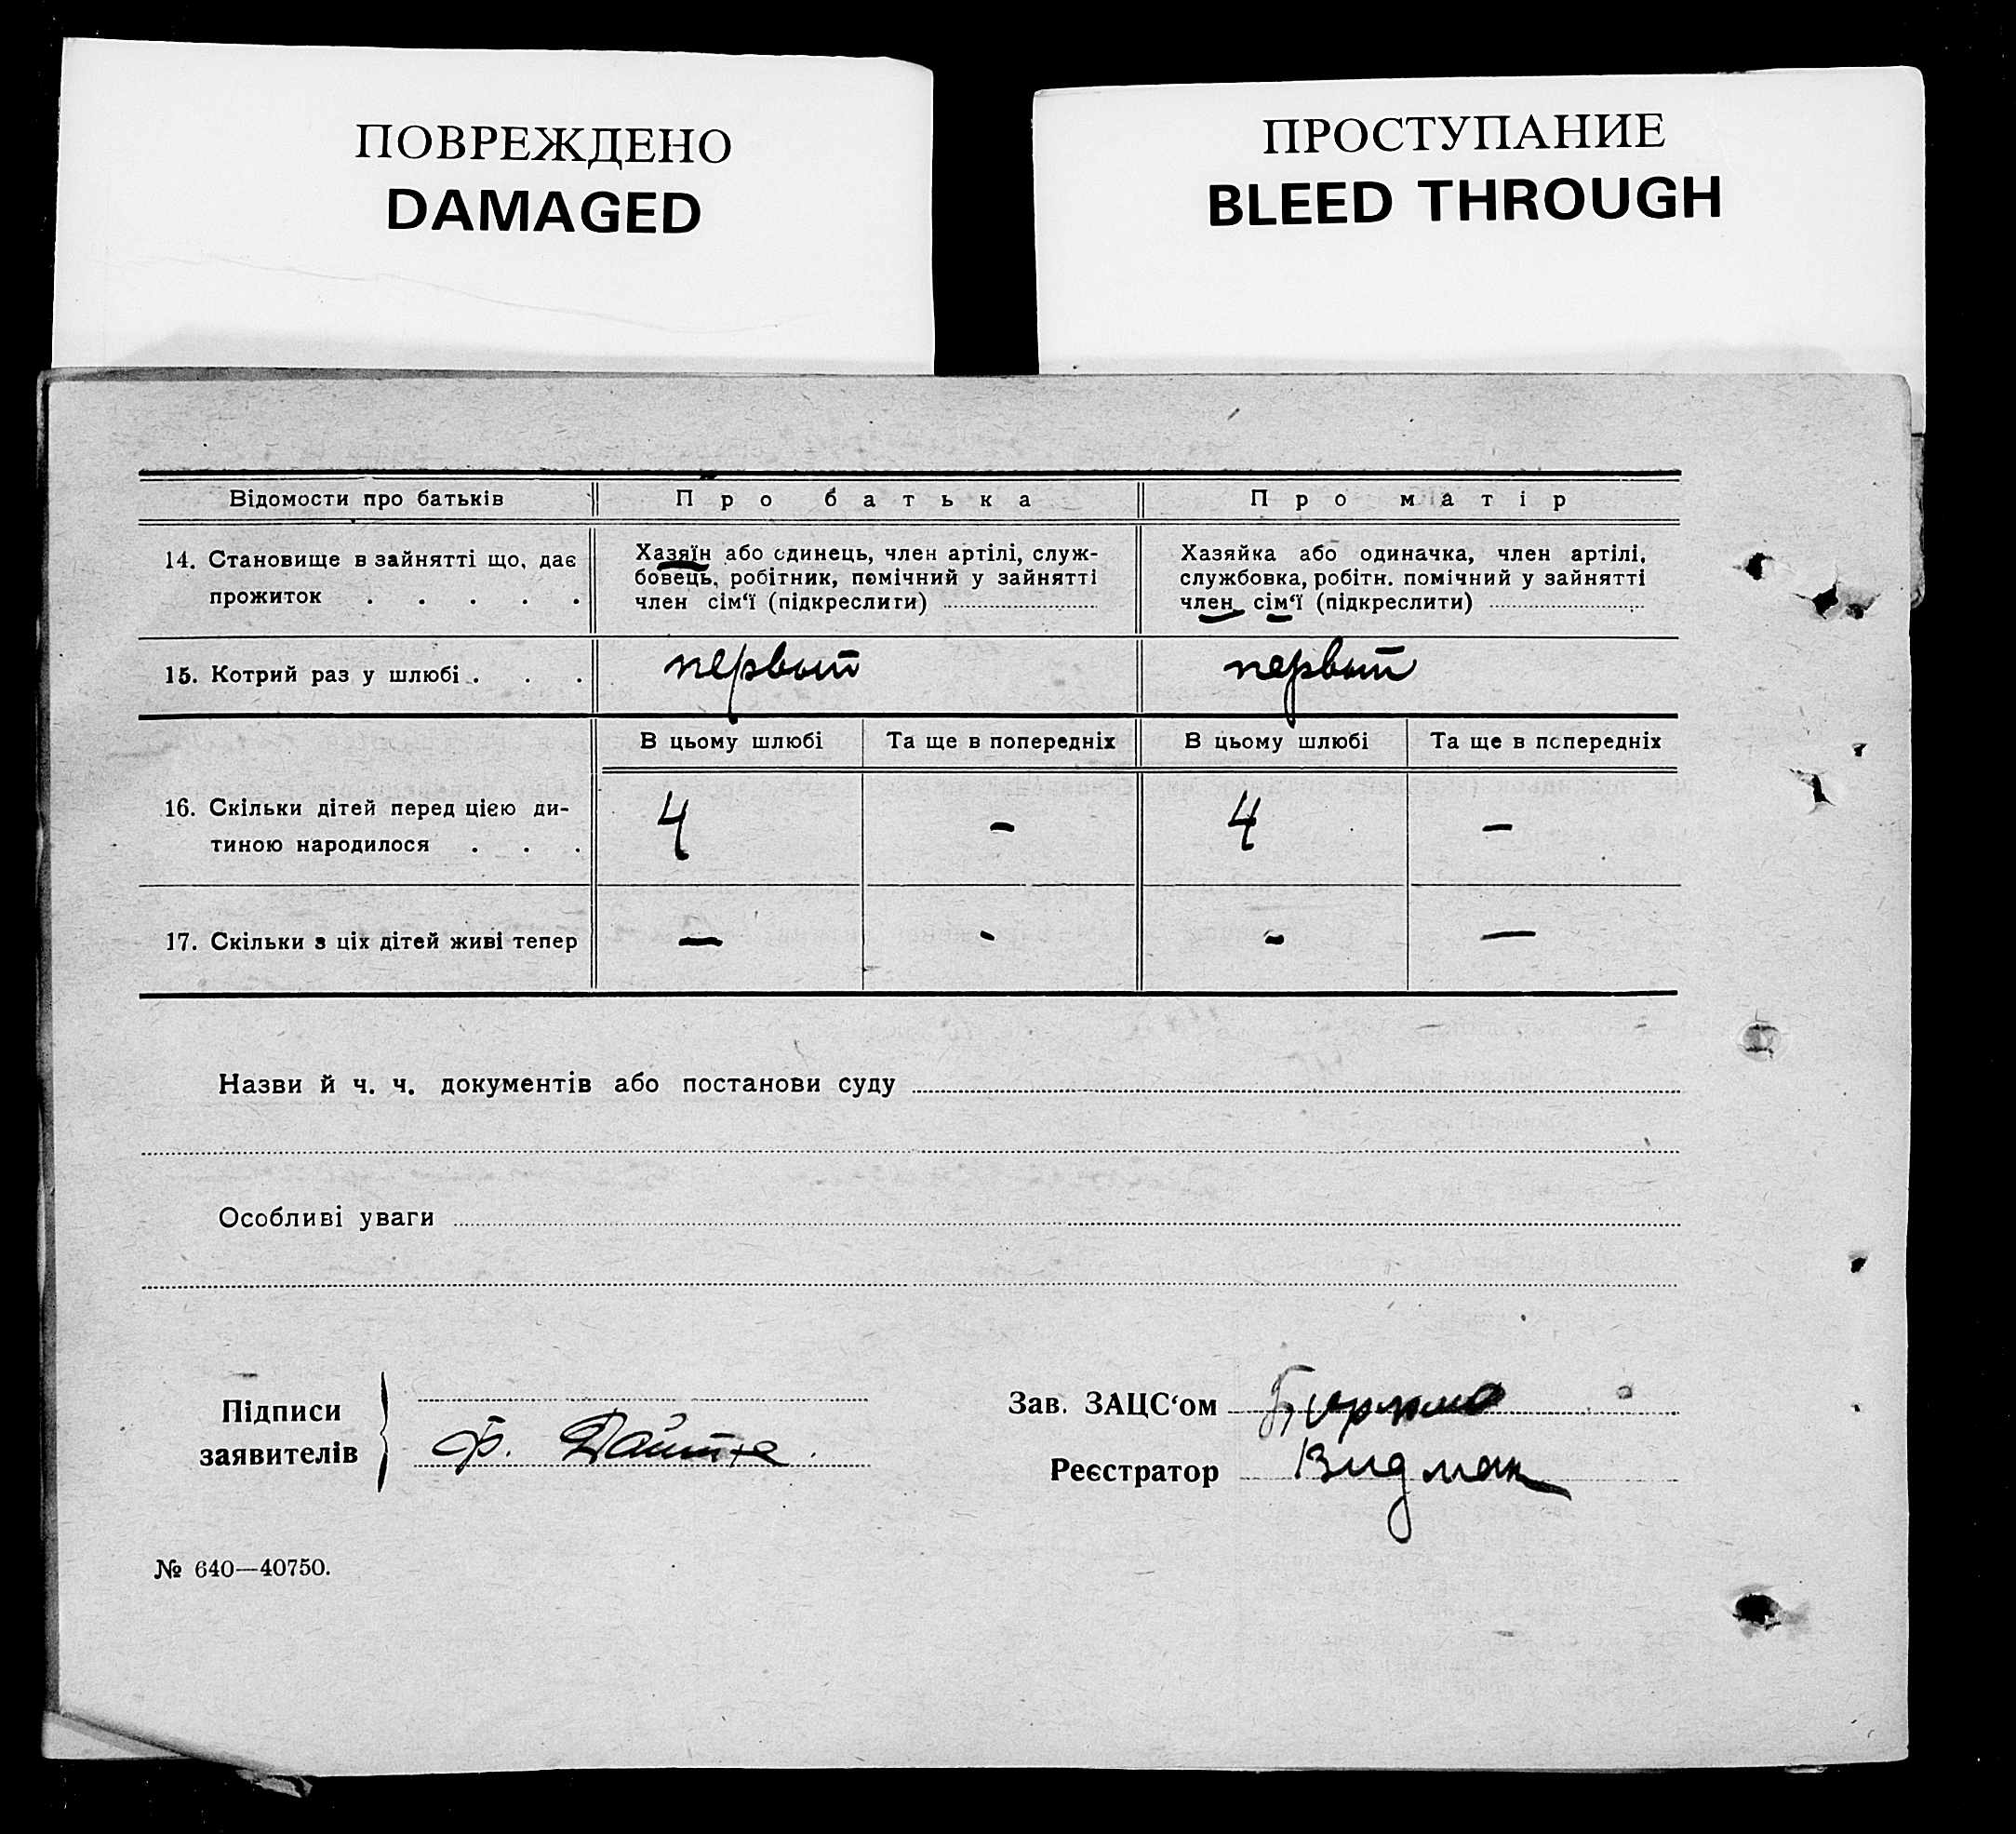 ПОВРЕЖДЕНО
DAMAGED
ПРОСТУПАНИЕ
BLEED THROUGH
Відомости про батьків
Про батька
Про матір
14. Становище в зайнятті що, дає
прожиток . . . . .
Хазяїн або одинець, член артілі, служ-
бовець, робітник, помічний у зайнятті
член сім‘ї (підкреслити)
Хазяйка або одиначка, член артілі,
службовка, робітн. помічний у зайнятті
член сім‘ї (підкреслити)
15. Котрий раз у шлюбі . . .
первый
первый
В цьому шлюбі
Та ще в попередніх
В цьому шлюбі
Та ще в попередніх
16. Скільки дітей перед цією ди-
тиною народилося . . .
4
-
4
-
17. Скільки з ціх дітей живі тепер
-
-
-
-
Назви й ч. ч. документів або постанови суду
Особливі уваги
Підписи
заявителів
Ф.
Зав. ЗАЦС‘ом
Реєстратор
Видман
№ 640—40750.